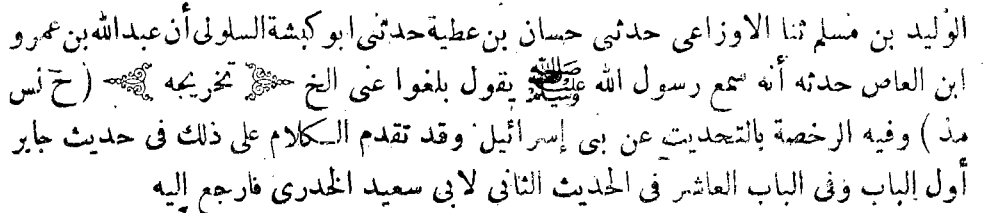 الوليد بن مسلم ثنا الاوزاعى حدثنى حسان بن عطية حدثنى ابو كبشة السلولى أن عبد الله بن عمرو
ابن العاص حدثه أنه سمع رسول الله ﷺ يقول بلغوا عنى الخ تخريجه ( خ نس
مذ ) وفيه الرخصة بالتحديث عن بنى إسرائيل وقد تقدم الكلام على ذلك فى حديث جابر
أول الباب وفى الباب العاشر فى الحديث الثانى لابى سعيد الخدرى فارجع إليه